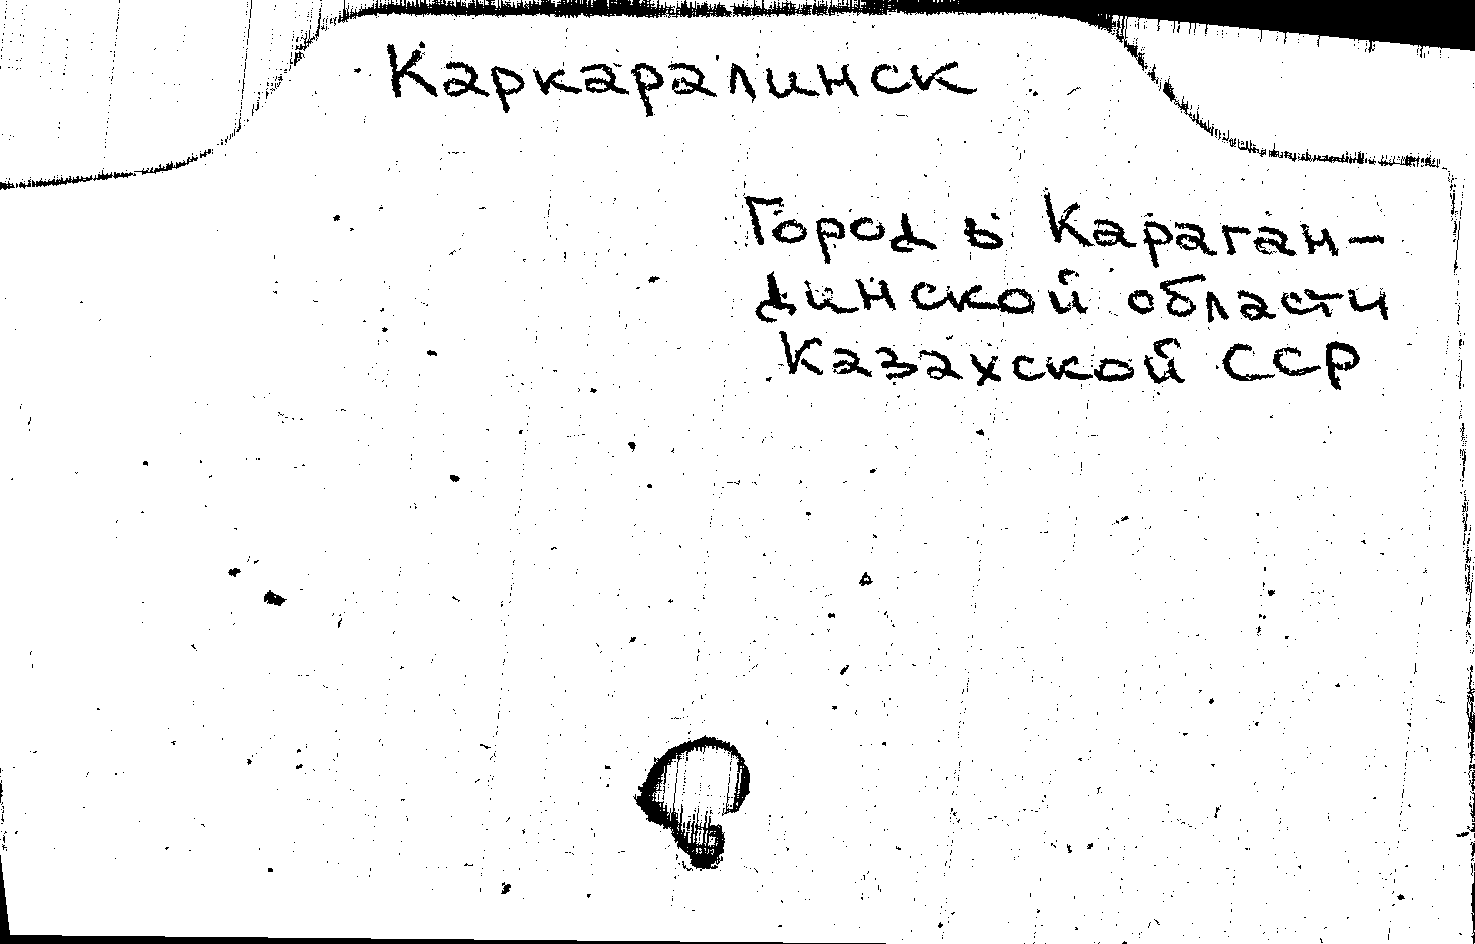 Каркаралинск
Город в Караган-
динской области
Казахской ССР